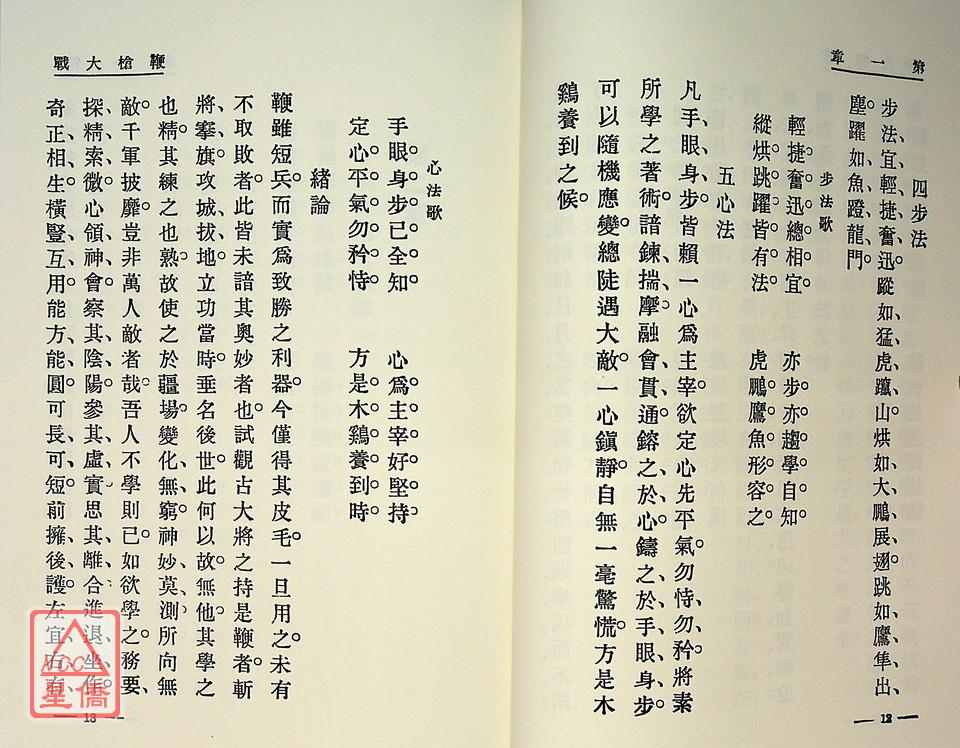 第一章
四步法
步法宜輕捷奮迅。蹤如猛虎躥山。烘如大鵬展翅。跳如鷹隼出
塵。躍如魚蹬龍門、
步法歌
輕捷奮迅總相宜　亦步亦趨學自知
縱烘跳躍皆有法　虎鵬鷹魚形容之
五心法
凡手、眼、身、步、皆賴一心爲主宰。欲定心先平氣。勿恃、勿矜。將素
所學之著術。諳鍊揣摩。融會貫通。鎔之於心。鑄之於手眼身步。
可以隨機應變。總陡遇大敵。一心鎮靜。自無一毫驚慌。方是木
鷄養到之候。
12
鞭槍大戰
心法歌
手眼身步已全知　心爲主宰好堅持
定心平氣勿矜恃　方是木鷄養到時
緒論
鞭雖短兵。而實爲致勝之利器。今僅得其皮毛。一旦用之。未有
不取敗者。此皆未諳其奧妙者也。試觀古大將之持是鞭者。斬
將、搴旗、攻城、拔地、立功當時、垂名後世。此何以故。無他。其學之
也精。其練之也熟。故使之於疆場。變化無窮。神妙莫測。所向無
敵。千軍披靡。豈非萬人敵者哉。吾人不學則已。如欲學之。務要、
探精、索微、心領、神會、察其陰陽、參其虛實、思其離合、進退、坐作、
奇正、相生、橫豎、互用、能方、能圓、可長、可短、前擁、後護、左宜、右有、
13
KCC
星僑